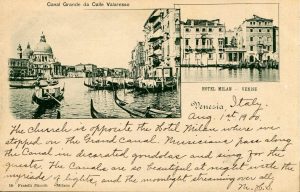 Canal Grande da Calle Valaresso
HOTEL MILAN - VENISE
Venezia, Italy,
Aug. 1st 1900.
The Church is opposite the Hotel Milan where we
stopped on the Grand Canal. Musicians pass along
the Canal in decorated gondolas and sing for the
guests. The Canals are so beautiful at night with the
myriads of lights, and the moonlight streaming over all.
M. H. S.
Milano